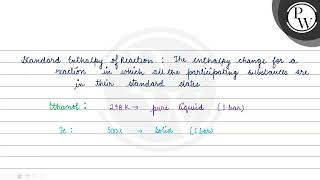 PW
Standard Enthalpy of Reaction : The enthalpy change for a
reaction in which all the participating substances are
in their standard states
Ethanol : 298 K → pure liquid (1 bar)
Fe : 500 K → Solid (1 bar)